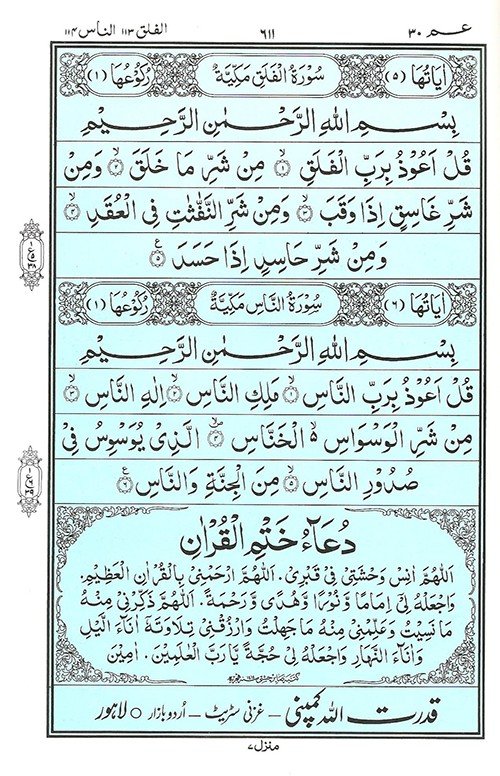 عم ۳۰
۶۱۱
الفلق ۱۱۳ الناس ۱۱۴
اٰيَاتُهَا (۵)
سُوْرَةُ الْفَلَقِ مَكِّيَّةٌ
رُكُوْعُهَا (۱)
بِسْمِ اللهِ الرَّحْمٰنِ الرَّحِيْمِ
قُلْ اَعُوْذُ بِرَبِّ الْفَلَقِ ۙ﴿۱﴾ مِنْ شَرِّ مَا خَلَقَ ۙ﴿۲﴾ وَمِنْ
شَرِّ غَاسِقٍ اِذَا وَقَبَ ۙ﴿۳﴾ وَمِنْ شَرِّ النَّفّٰثٰتِ فِى الْعُقَدِ ۙ﴿۴﴾
وَمِنْ شَرِّ حَاسِدٍ اِذَا حَسَدَ ﴿۵﴾
اٰيَاتُهَا (۶)
سُوْرَةُ النَّاسِ مَكِّيَّةٌ
رُكُوْعُهَا (۱)
بِسْمِ اللهِ الرَّحْمٰنِ الرَّحِيْمِ
قُلْ اَعُوْذُ بِرَبِّ النَّاسِ ۙ﴿۱﴾ مَلِكِ النَّاسِ ۙ﴿۲﴾ اِلٰهِ النَّاسِ ۙ﴿۳﴾
مِنْ شَرِّ الْوَسْوَاسِ ۙ۬ الْخَنَّاسِ ۪ۙ﴿۴﴾ الَّذِىْ يُوَسْوِسُ فِىْ
صُدُوْرِ النَّاسِ ۙ﴿۵﴾ مِنَ الْجِنَّةِ وَالنَّاسِ ﴿۶﴾
دُعَآءُ خَتْمِ الْقُرْاٰنِ
اَللّٰهُمَّ اٰنِسْ وَحْشَتِيْ فِيْ قَبْرِيْ. اَللّٰهُمَّ ارْحَمْنِيْ بِالْقُرْاٰنِ الْعَظِيْمِ.
وَاجْعَلْهُ لِيْ اِمَامًا وَّنُوْرًا وَّهُدًى وَّرَحْمَةً. اَللّٰهُمَّ ذَكِّرْنِيْ مِنْهُ
مَا نَسِيْتُ وَعَلِّمْنِيْ مِنْهُ مَا جَهِلْتُ وَارْزُقْنِيْ تِلَاوَتَهٗ اٰنَآءَ الَّيْلِ
وَاٰنَآءَ النَّهَارِ وَاجْعَلْهُ لِيْ حُجَّةً يَّا رَبَّ الْعٰلَمِيْنَ. اٰمِيْن
قدرت اللہ کمپنی – غزنی سٹریٹ – اُردو بازار ○ لاہور
منزل ۷